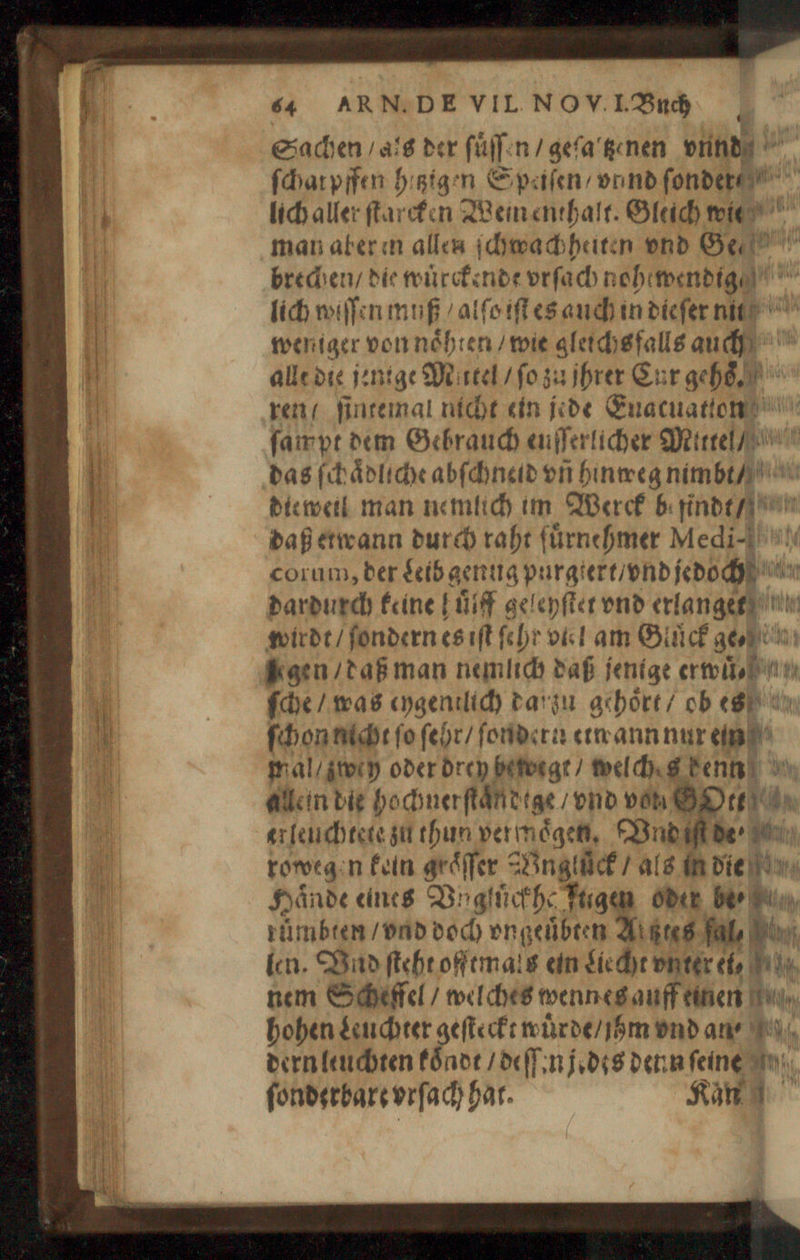 64 ARN. DE VIL NOV. I. Buch
Sachen / als der süssen / gesaltzenen vnnd
scharpffen hitzigen Speisen / vnnd sonder⸗
lich aller starcken Wein enthalt. Gleich wie
man aber in allen schwachheiten vnd Ge⸗
brechen / die würckende vrsach nohtwendig⸗
lich wissen muß / also ist es auch in dieser nit
weniger von nöhten / wie gleichsfalls auch
alle die jenige Mittel / so zu jhrer Cur gehö⸗
ren / sintemal nicht ein jede Euacuation
sampt dem Gebrauch eusserlicher Mittel /
das schädliche abschneid vñ hinweg nimbt /
dieweil man nemlich im Werck befindt /
daß etwann durch raht fürnehmer Medi-
corum, der Leib genug purgiert / vnd jedoch
dardurch keine hülff geleystet vnd erlanget
wirdt / sondern es ist sehr viel am Glück ge⸗
legen / daß man nemlich daß jenige erwü⸗
sche / was eygentlich darzu gehört / ob es
schon nicht so sehr / sondern etwann nur ein
mal / zwey oder drey bewegt / welches denn
allein die hochnerständige / vnd von GOtt
erleuchtete zu thun vermögen. Vnd ist de⸗
rowegen kein grösser Vnglück / als in die
Hände eines Vnglückhafftigen oder be⸗
rümbten / vnd doch vngeübten Artztes fal⸗
len. Vnd steht offtmals ein Liecht vnter ei⸗
nem Scheffel / welches wenn es auff einen
hohen Leuchter gesteckt würde / jhm vnd an⸗
dern leuchten köndt / dessen jedes denn seine
sonderbare vrsach hat.
Kan